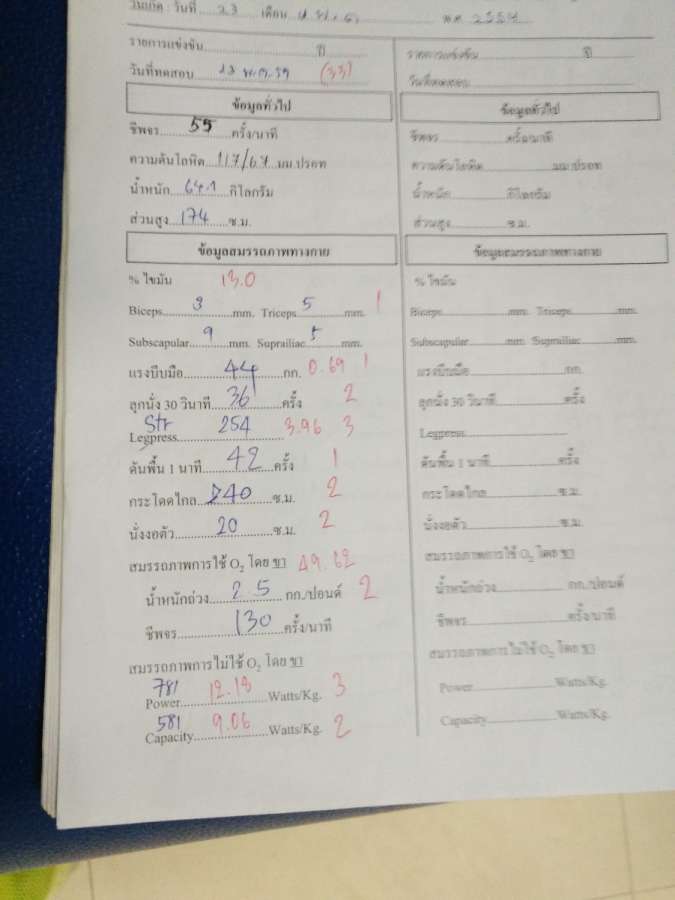 วันเกิด : วันที่ 23 เดือน พ.ศ. 2554
รายการแข่งขัน ปี
วันที่ทดสอบ 23 พ.ค. 59 (33)
ข้อมูลทั่วไป
ชีพจร 55 ครั้ง/นาที
ความดันโลหิต 117/67 มม.ปรอท
น้ำหนัก 64.1 กิโลกรัม
ส่วนสูง 174 ซ.ม.
ข้อมูลสมรรถภาพทางกาย
% ไขมัน 13.0
Biceps 3 mm. Triceps 5 mm. 1
Subscapular 9 mm. Suprailiac 5 mm.
แรงบีบมือ 44 กก. 0.69 1
ลุกนั่ง 30 วินาที 36 ครั้ง 2
Str
Legpress 254 3.96 3
ดันพื้น 1 นาที 42 ครั้ง 1
กระโดดไกล 240 ซ.ม. 2
นั่งงอตัว 20 ซ.ม. 2
สมรรถภาพการใช้ O₂ โดย ขา 49.62
น้ำหนักถ่วง 2.5 กก./ปอนด์ 2
ชีพจร 130 ครั้ง/นาที
สมรรถภาพการไม่ใช้ O₂ โดย ขา
781
Power 12.18 Watts/Kg. 3
581
Capacity 9.06 Watts/Kg. 2
รายการแข่งขัน ปี
วันที่ทดสอบ
ข้อมูลทั่วไป
ชีพจร ครั้ง/นาที
ความดันโลหิต มม.ปรอท
น้ำหนัก กิโลกรัม
ส่วนสูง ซ.ม.
ข้อมูลสมรรถภาพทางกาย
% ไขมัน
Biceps mm. Triceps mm.
Subscapular mm. Suprailiac mm.
แรงบีบมือ กก.
ลุกนั่ง 30 วินาที ครั้ง
Legpress
ดันพื้น 1 นาที ครั้ง
กระโดดไกล ซ.ม.
นั่งงอตัว ซ.ม.
สมรรถภาพการใช้ O₂ โดย ขา
น้ำหนักถ่วง กก./ปอนด์
ชีพจร ครั้ง/นาที
สมรรถภาพการไม่ใช้ O₂ โดย ขา
Power Watts/Kg.
Capacity Watts/Kg.